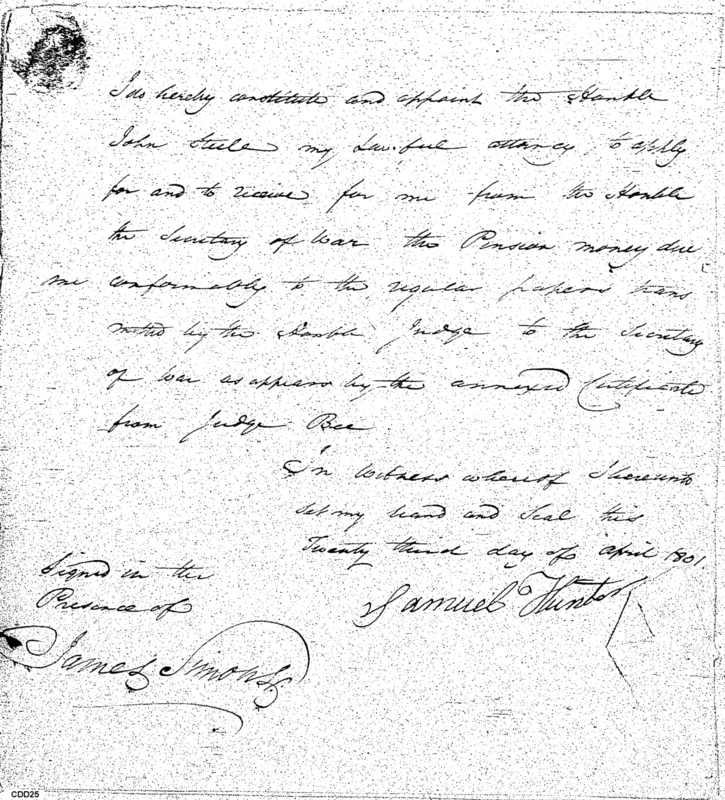 I do hereby constitute and appoint the Honble
John Steele my Lawful attorney, to apply
for and to receive for me from the Honble
the Secretary of War the Pension money due
me conformably to the regular papers trans
mitted by the Honble Judge to the Secretary
of War as appears by the annexed Certificate
from Judge Bee
In Witness whereof I hereunto
set my hand and Seal this
Twenty third day of April 1801.
Signed in the
Presence of
Samuel Hunter
James Simons
CDD25